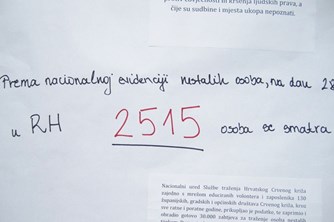 čije su sudbine i mjesta ukopa nepoznati.
Prema nacionalnoj evidenciji nestalih osoba, na dan 28
u RH 2515 osoba se smatra
Nacionalni ured Službe traženja Hrvatskog Crvenog križa
zajedno s mrežom educiranih volontera i zaposlenika 130
županijskih, gradskih i općinskih društava Crvenog križa, kroz
sve ratne i poratne godine, prikupljao je podatke, te zaprimio i
obradio gotovo 30.000 zahtjeva za traženje osoba nestalih